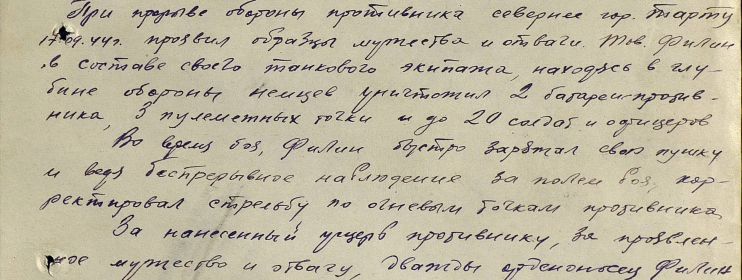 При прорыве обороны противника севернее гор. Тарту
17.09.44г. проявил образцы мужества и отваги. Тов. Филин
в составе своего танкового экипажа, находясь в глу-
бине обороны немцев уничтожил 2 батареи против-
ника, 3 пулеметных точки и до 20 солдат и офицеров
Во время боя, Филин быстро заряжал свою пушку
и ведя беспрерывное наблюдение за полем боя, кор-
ректировал стрельбу по огневым точкам противника
За нанесенный ущерб противнику, за проявлен-
ное мужество и отвагу, дважды орденоносец Филин